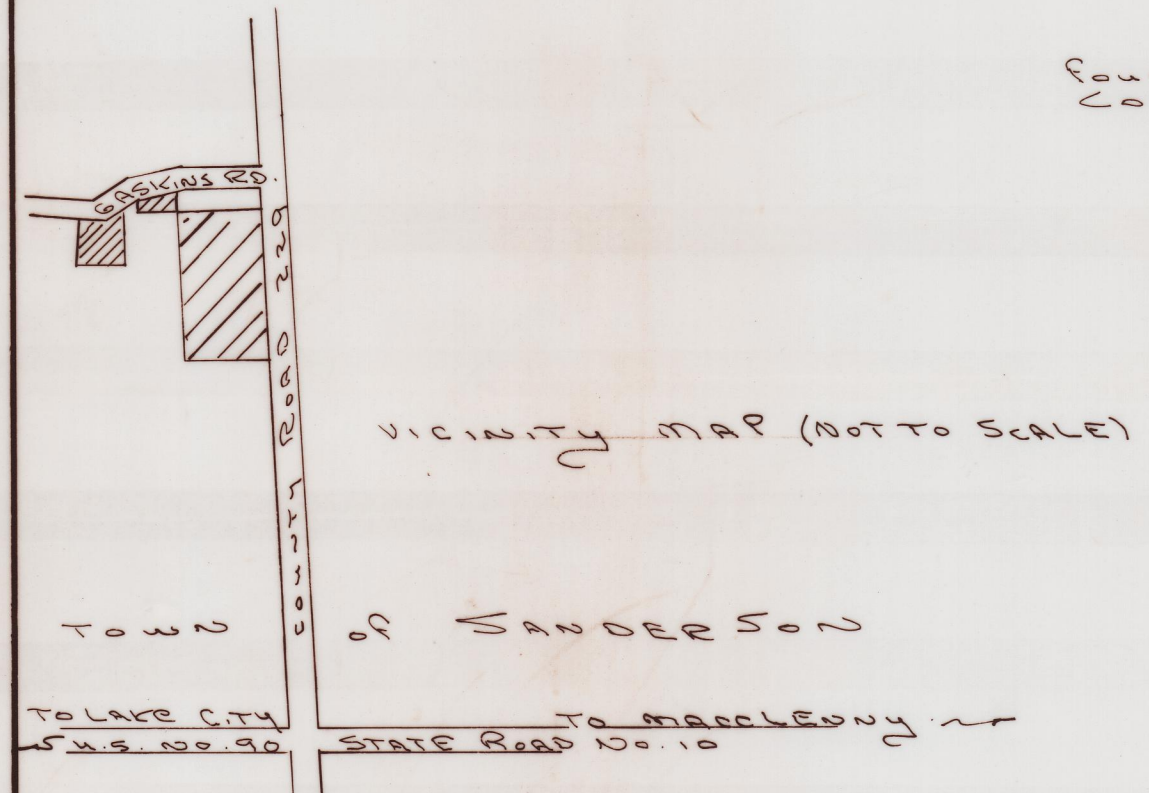 GASKINS RD.
COUNTY ROAD 229
VICINITY MAP (NOT TO SCALE)
TOWN OF SANDERSON
TO LAKE CITY
TO MACCLENNY
U.S. NO. 90
STATE ROAD NO. 10